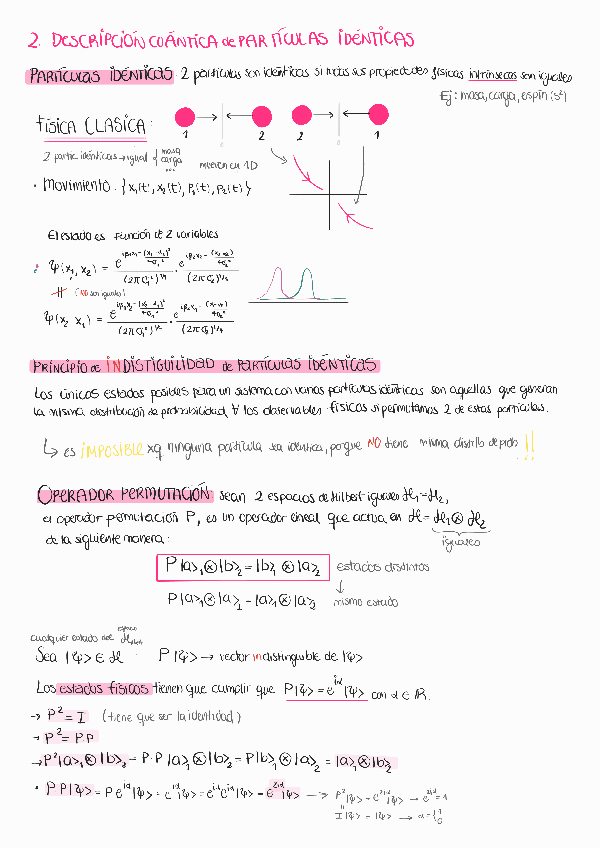 2. DESCRIPCIÓN CUÁNTICA de PARTÍCULAS IDÉNTICAS
PARTÍCULAS IDÉNTICAS. 2 partículas son idénticas si todas sus propiedades físicas intrínsecas son iguales
Ej: masa, carga, espín (s²)
FÍSICA CLÁSICA:
1 2 2 1
2 partic idénticas → igual { masa carga ...
mueven en 1D
· Movimiento. {x₁(t), x₂(t), p₁(t), p₂(t)}
El estado es función de 2 variables
ψ(x₁, x₂) =
(2πσ₁²)^1/4 · (2πσ₂²)^1/4
(NO son iguales)
ψ(x₂ x₁) =
(2πσ₁²)^1/4 · (2πσ₂²)^1/4
PRINCIPIO de INDISTIGUILIDAD de PARTÍCULAS IDÉNTICAS
Los únicos estados posibles para un sistema con varias partículas idénticas son aquellas que generan
la misma distribución de probabilidad, ∀ los observables físicos si permutamos 2 de estas partículas.
↳ es IMPOSIBLE xq ninguna partícula sea idéntica, porque NO tiene misma distrib de prob!!
OPERADOR PERMUTACIÓN: sean 2 espacios de Hilbert iguales H₁=H₂,
el operador permutación P, es un operador lineal que actua en H = H₁⊗H₂
iguales
de la siguiente manera:
P|a>₁⊗|b>₂ = |b>₁⊗|a>₂ estados distintos
P|a>₁⊗|a>₂ = |a>₁⊗|a>₂ mismo estado
cualquier estado del espacio
Sea |ψ> ∈ H P|ψ> → vector indistinguible de |ψ>
Los estados físicos tienen que cumplir que P|ψ> = e^iα|ψ> con α ∈ ℝ.
→ P² = I (tiene que ser la identidad)
→ P² = P.P
→ P²|a>₁⊗|b>₂ = P·P|a>₁⊗|b>₂ = P|b>₁⊗|a>₂ = |a>₁⊗|b>₂
· PP|ψ> = Pe^iα|ψ> = e^iα|ψ> = e^iαe^iα|ψ> = e^2iα|ψ> → P²|ψ> = e^2iα|ψ> → e^2iα = 1
I|ψ> = |ψ>